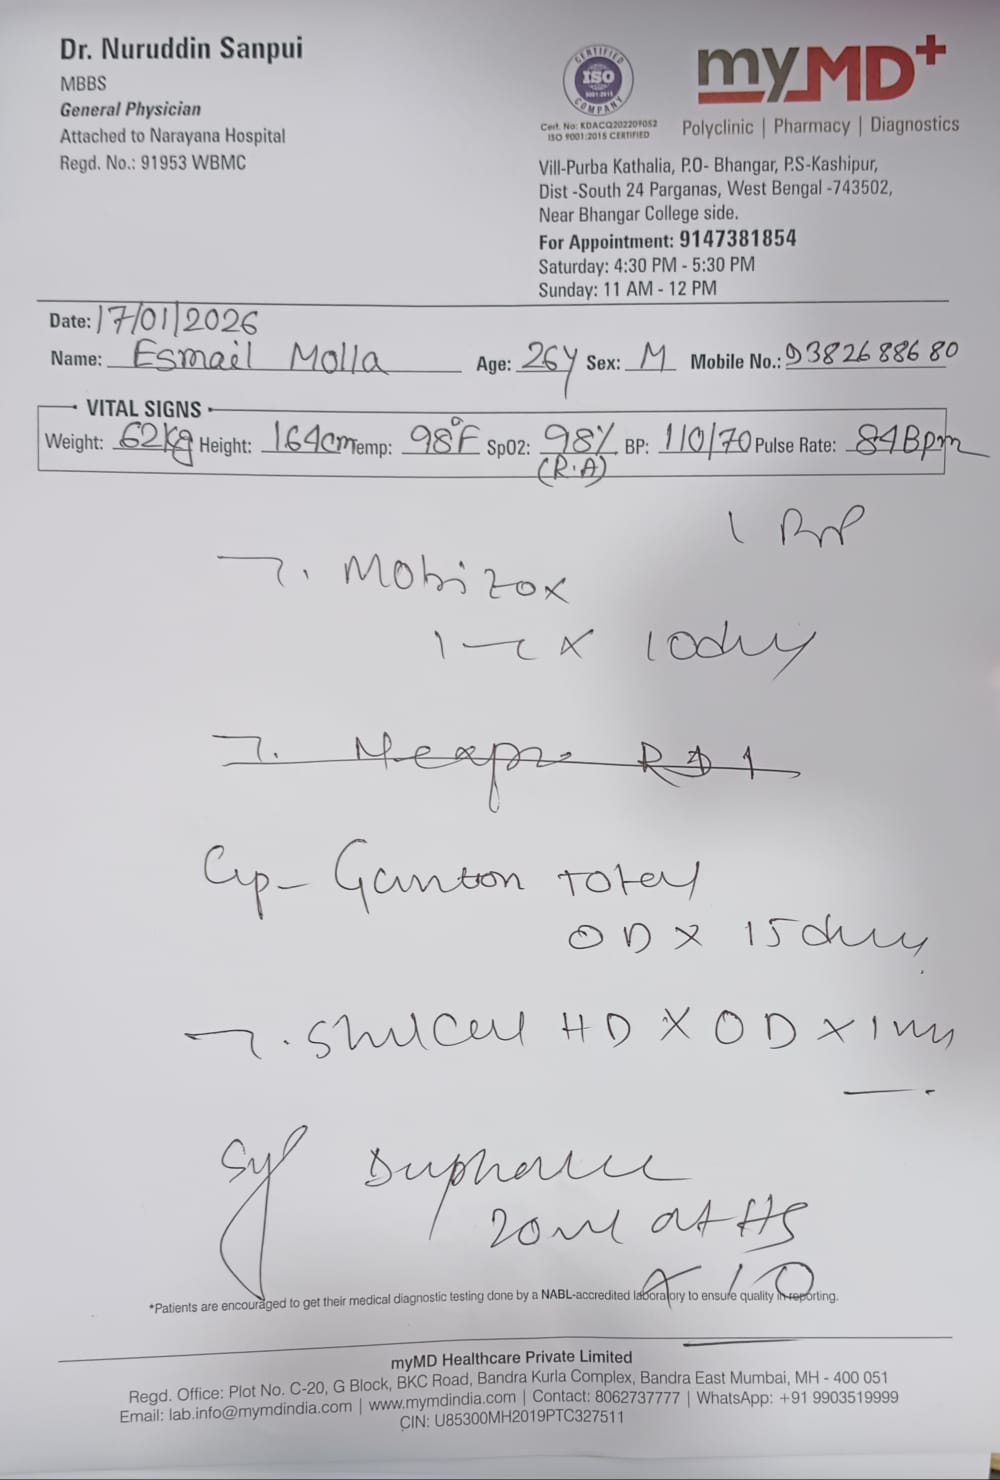 Dr. Nuruddin Sanpui
MBBS
General Physician
Attached to Narayana Hospital
Regd. No.: 91953 WBMC
CERTIFIED
ISO
9001:2015
COMPANY
Cert. No: KDACQ202209052
ISO 9001:2015 CERTIFIED
myMD+
Polyclinic | Pharmacy | Diagnostics
Vill-Purba Kathalia, P.O- Bhangar, P.S-Kashipur,
Dist -South 24 Parganas, West Bengal -743502,
Near Bhangar College side.
For Appointment: 9147381854
Saturday: 4:30 PM - 5:30 PM
Sunday: 11 AM - 12 PM
Date: 17/01/2026
Name: Esmail Molla Age: 26y Sex: M Mobile No.: 9382688680
VITAL SIGNS
Weight: 62kg Height: 164cm Temp: 98°F SpO2: 98% BP: 110/70 Pulse Rate: 84Bpm
(R.A)
T. Mobizox
1-1 x 10day
Cap- Ganton Total
OD x 15day
T. Shelcal HD x OD x 1
Syp Duphalac
20ml at HS
x 10
*Patients are encouraged to get their medical diagnostic testing done by a NABL-accredited laboratory to ensure quality in reporting.
myMD Healthcare Private Limited
Regd. Office: Plot No. C-20, G Block, BKC Road, Bandra Kurla Complex, Bandra East Mumbai, MH - 400 051
Email: lab.info@mymdindia.com | www.mymdindia.com | Contact: 8062737777 | WhatsApp: +91 9903519999
CIN: U85300MH2019PTC327511